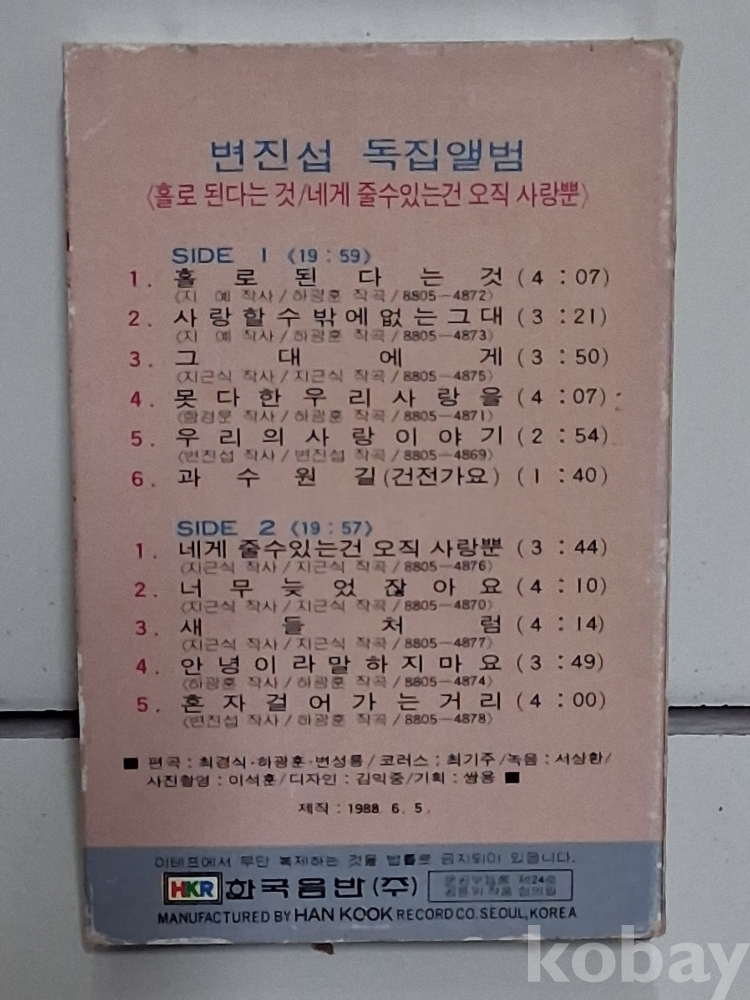 변진섭 독집앨범
〈홀로 된다는 것/네게 줄수있는건 오직 사랑뿐〉
SIDE 1 《19 : 59》
1. 홀로된다는것 (4 : 07)
〈지 예 작사/하광훈 작곡/8805-4872〉
2. 사랑할수밖에없는그대 (3 : 21)
〈지 예 작사/하광훈 작곡/8805-4873〉
3. 그대에게 (3 : 50)
〈지근식 작사/지근식 작곡/8805-4875〉
4. 못다한우리사랑을 (4 : 07)
〈함경문 작사/하광훈 작곡/8805-4871〉
5. 우리의사랑이야기 (2 : 54)
〈변진섭 작사/변진섭 작곡/8805-4869〉
6. 과수원길(건전가요) (1 : 40)
SIDE 2 《19 : 57》
1. 네게 줄수있는건 오직 사랑뿐 (3 : 44)
〈지근식 작사/지근식 작곡/8805-4876〉
2. 너무늦었잖아요 (4 : 10)
〈지근식 작사/지근식 작곡/8805-4870〉
3. 새들처럼 (4 : 14)
〈지근식 작사/지근식 작곡/8805-4877〉
4. 안녕이라말하지마요 (3 : 49)
〈하광훈 작사/하광훈 작곡/8805-4874〉
5. 혼자걸어가는거리 (4 : 00)
〈변진섭 작사/하광훈 작곡/8805-4878〉
■ 편곡 : 최경식·하광훈·변성룡/코러스 : 최기주/녹음 : 서상환/
사진촬영 : 이석훈/디자인 : 김익중/기획 : 쌍용 ■
제작 : 1988. 6. 5.
이테프에서 무단 복제하는 것을 법률로 금지되어 있읍니다.
HKR 한국음반(주)
제24호
MANUFACTURED BY HAN KOOK RECORD CO. SEOUL, KOREA
kobay